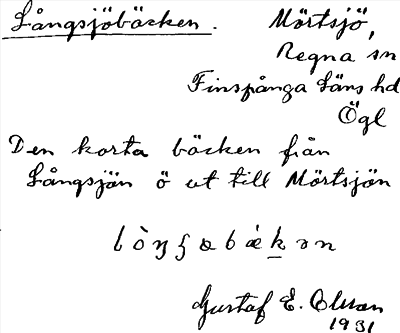 Långsjöbäcken. Mörtsjö,
Regna sn
Finspånga Läns hd
Ögl
Den korta bäcken från
Långsjön ö ut till Mörtsjön
Gustaf E. Olsson
1931